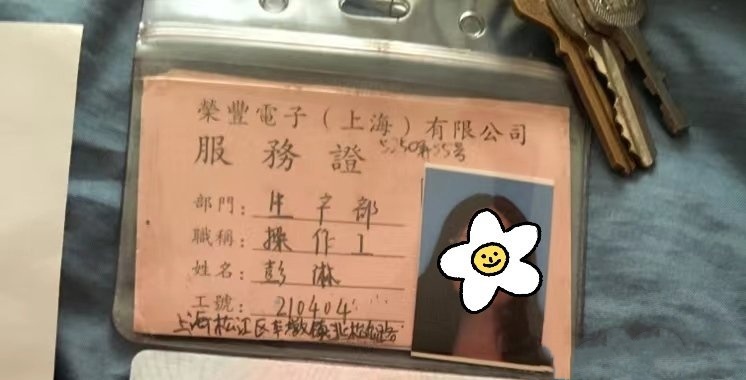 榮豐電子(上海)有限公司
服務證
部門: 生产部
職稱: 操作工
姓名: 彭淋
工號: 210404
上海松江区车墩镇北松公路